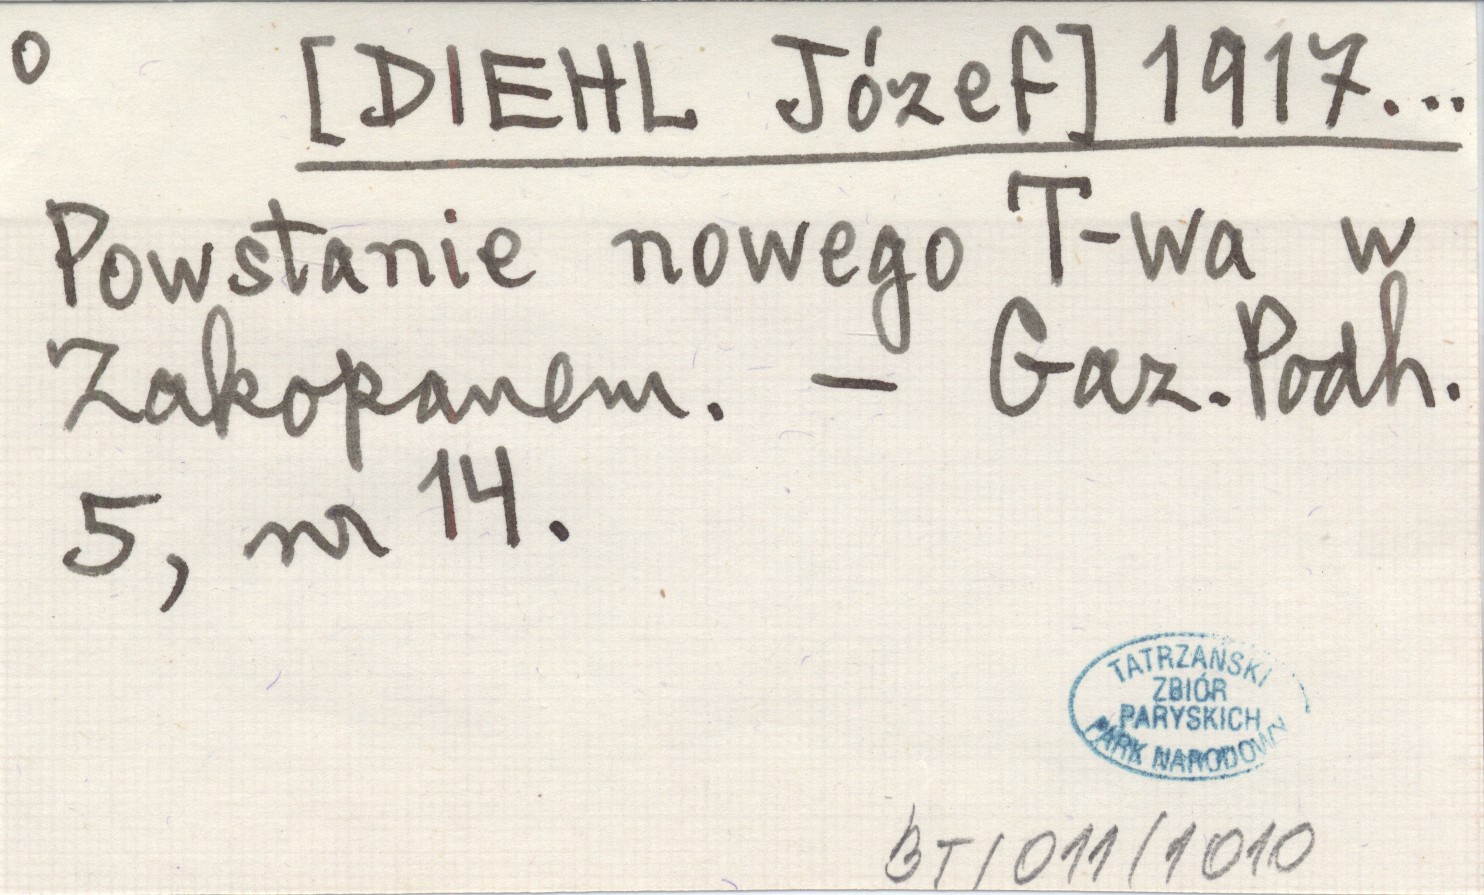 o [DIEHL Józef] 1917...
Powstanie nowego T-wa w
Zakopanem. – Gaz. Podh.
5, nr 14.
TATRZAŃSKI
ZBIÓR
PARYSKICH
PARK NARODOWY
BT/011/1010